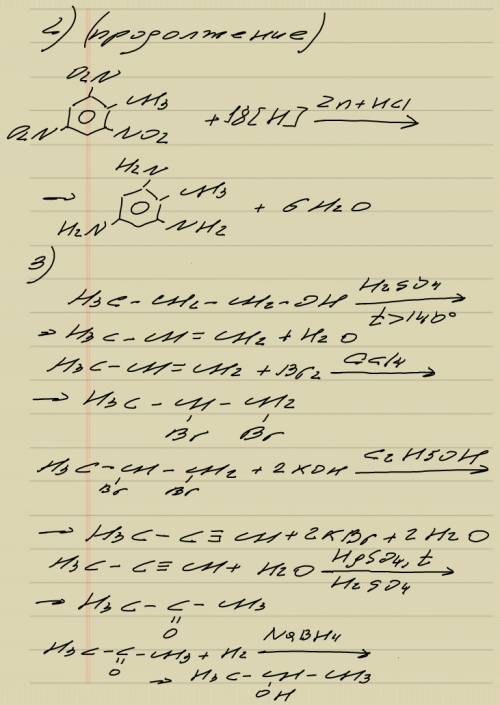 2) (продолжение)
O₂N
CH₃
O₂N
NO₂
+18[H]
Zn+HCl
→
H₂N
CH₃
H₂N
NH₂
+ 6 H₂O
3)
H₃C – CH₂ – CH₂ – OH
H₂SO₄
t>140°
→ H₃C – CH = CH₂ + H₂O
H₃C – CH = CH₂ + Br₂
CCl₄
→ H₃C – CH – CH₂
Br Br
H₃C – CH – CH₂ + 2 KOH
C₂H₅OH
Br Br
→ H₃C – C ≡ CH + 2 KBr + 2 H₂O
H₃C – C ≡ CH + H₂O
HgSO₄, t
H₂SO₄
→ H₃C – C – CH₃
O
H₃C – C – CH₃ + H₂
NaBH₄
O
→ H₃C – CH – CH₃
OH